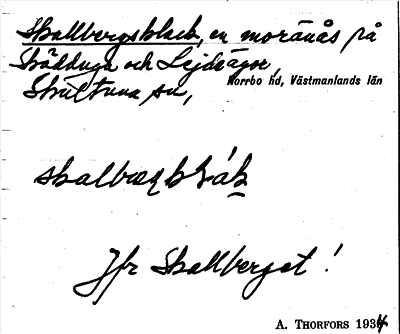 Skallbergsblack, en moränås på
Skädduga och Lejdvägor,
Norrbo hd, Västmanlands län
Skultuna sn,
Jfr Skallberget!
A. THORFORS 1934